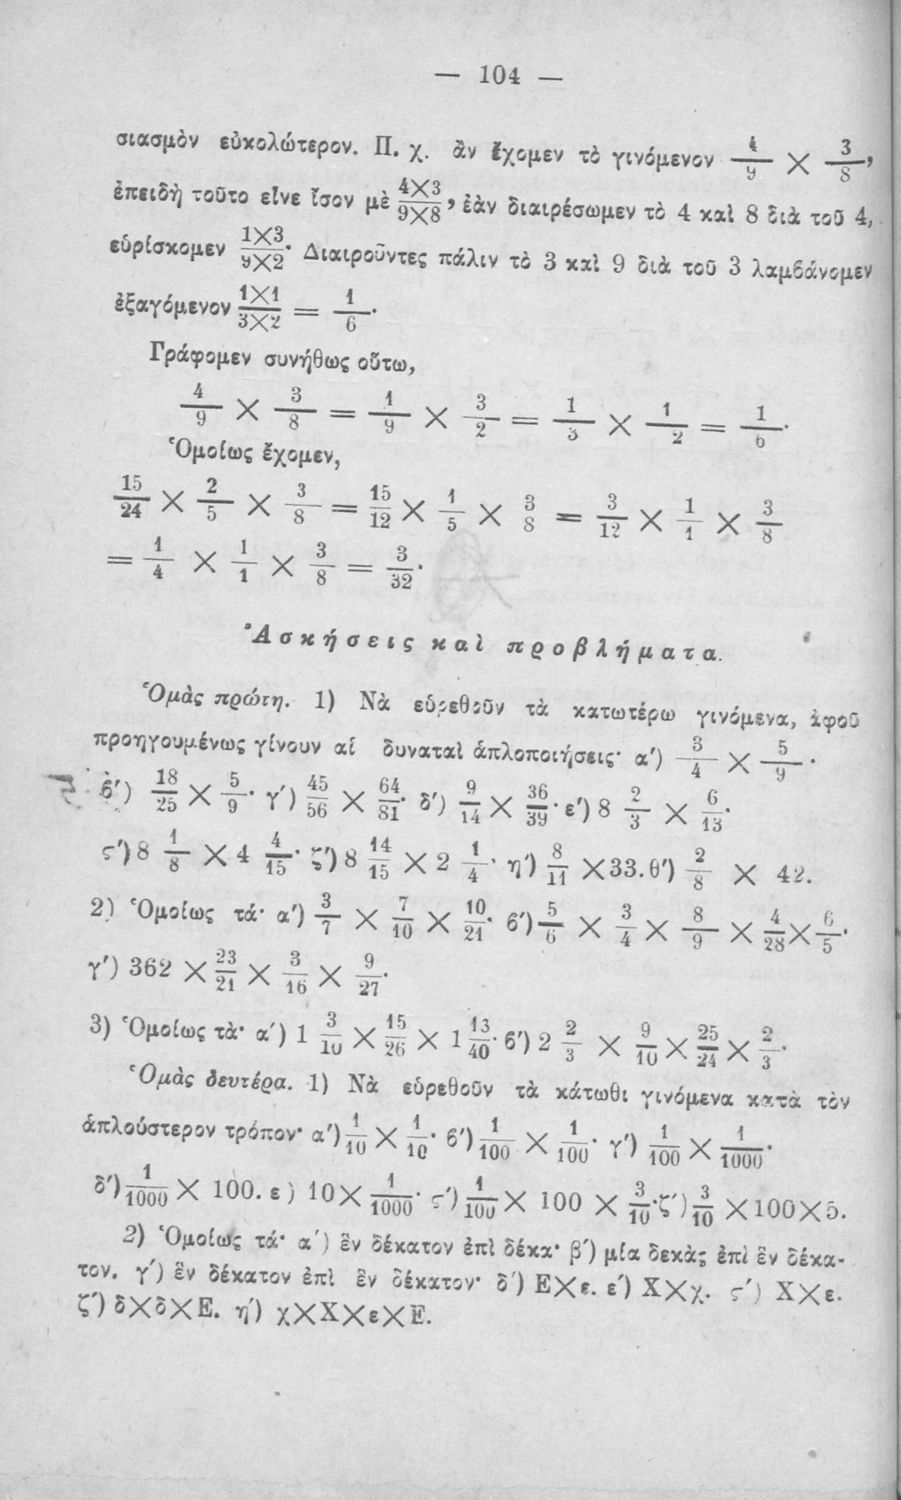 — 104 —
σιασμὸν εὐκολώτερον. Π. χ. ἂν ἔχομεν τὸ γινόμενον 4/9 × 3/8,
ἐπειδὴ τοῦτο εἶνε ἴσον μὲ 4×3/9×8, ἐὰν διαιρέσωμεν τὸ 4 καὶ 8 διὰ τοῦ 4,
εὑρίσκομεν 1×3/9×2· Διαιροῦντες πάλιν τὸ 3 καὶ 9 διὰ τοῦ 3 λαμβάνομεν
ἐξαγόμενον 1×1/3×2 = 1/6·
Γράφομεν συνήθως οὕτω,
4/9 × 3/8 = 1/9 × 3/2 = 1/3 × 1/2 = 1/6·
Ὁμοίως ἔχομεν,
15/24 × 2/5 × 3/8 = 15/12 × 1/5 × 3/8 = 3/12 × 1/1 × 3/8
= 1/4 × 1/1 × 3/8 = 3/32·
Ἀσκήσεις καὶ προβλήματα.
Ὁμὰς πρώτη. 1) Νὰ εὑρεθοῦν τὰ κατωτέρω γινόμενα, ἀφοῦ
προηγουμένως γίνουν αἱ δυναταὶ ἁπλοποιήσεις· α′) 3/4 × 5/9·
β′) 18/25 × 5/9· γ′) 45/56 × 64/81· δ′) 9/14 × 36/39· ε′) 8 2/3 × 6/13·
ς′) 8 1/8 × 4 4/15· ζ′) 8 14/15 × 2 1/4· η′) 8/11 ×33. θ′) 2/8 × 42.
2) Ὁμοίως τά· α′) 3/7 × 7/10 × 10/21· β′) 5/6 × 3/4 × 8/9 × 4/28 × 6/5·
γ′) 362 × 23/21 × 3/16 × 9/27·
3) Ὁμοίως τὰ· α′) 1 3/10 × 15/26 × 1 13/40· β′) 2 2/3 × 9/10 × 25/24 × 2/3·
Ὁμὰς δευτέρα. 1) Νὰ εὑρεθοῦν τὰ κάτωθι γινόμενα κατὰ τὸν
ἁπλούστερον τρόπον· α′) 1/10 × 1/10· β′) 1/100 × 1/100· γ′) 1/100 × 1/1000·
δ′) 1/1000 × 100. ε) 10× 1/1000· ς′) 1/100 × 100 × 3/10· ζ′) 3/10 ×100×5.
2) Ὁμοίως τά· α′) ἓν δέκατον ἐπὶ δέκα· β′) μία δεκὰς ἐπὶ ἓν δέκα-
τον. γ′) ἓν δέκατον ἐπὶ ἓν δέκατον· δ′) Ε×ε. ε′) Χ×χ. ς′) Χ×ε.
ζ′) δ×δ×Ε. η′) χ×Χ×ε×Ε.